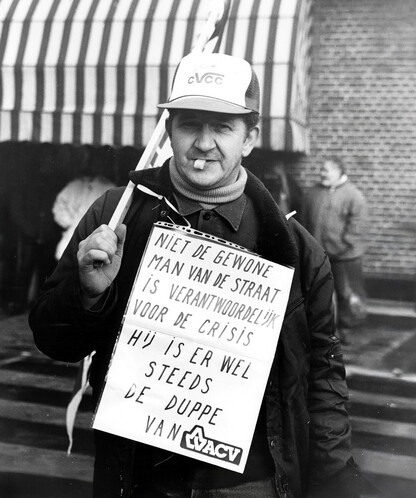 CVCC
NIET DE GEWONE
MAN VAN DE STRAAT
IS VERANTWOORDELIJK
VOOR DE CRISIS
HIJ IS ER WEL
STEEDS
DE DUPPE
VAN ACV